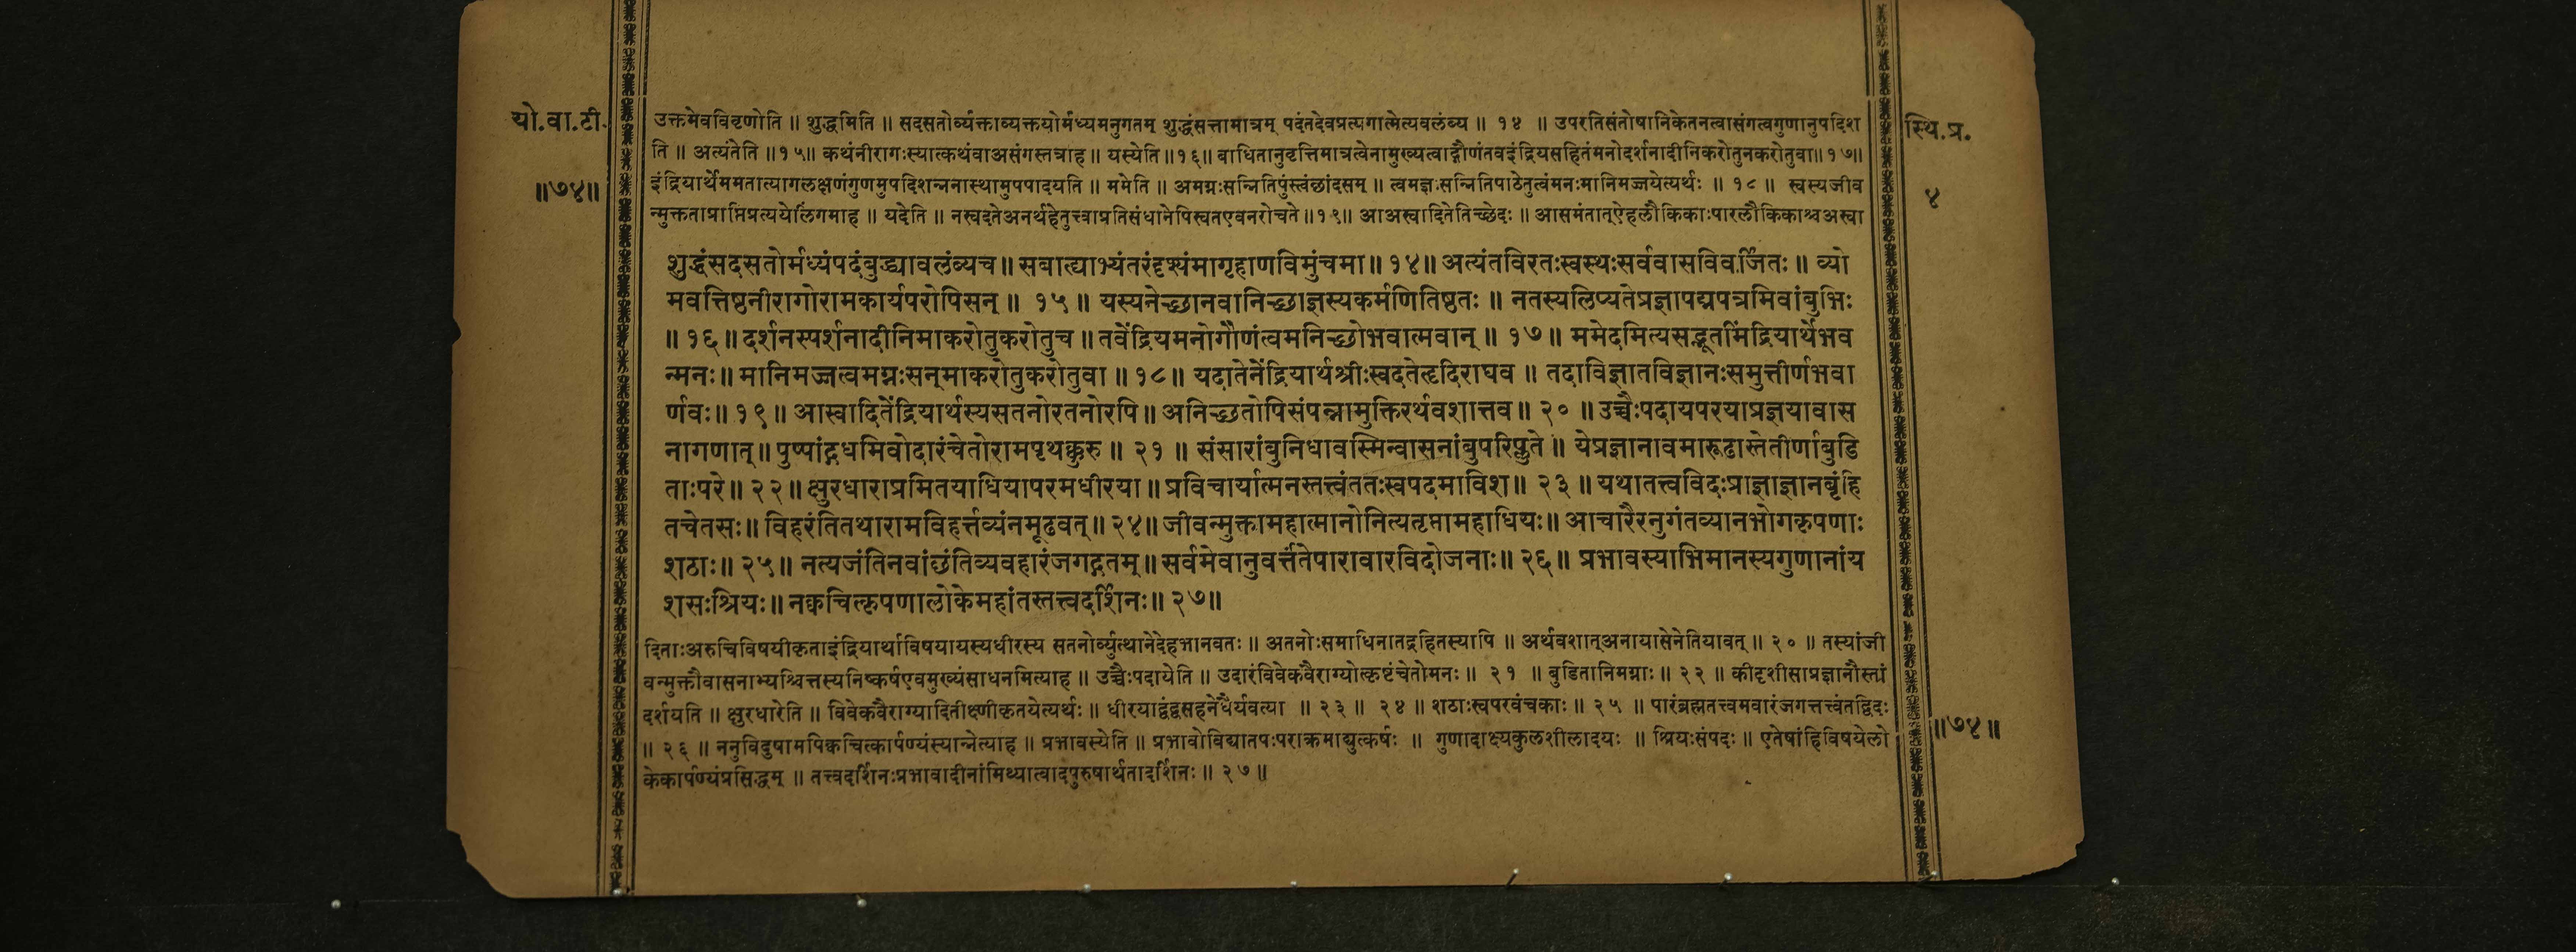 यो.वा.टी.
स्थि.प्र.
॥७४॥
४
उक्तमेवविवृणोति ॥ शुद्धमिति ॥ सदसतोर्व्यक्ताव्यक्तयोर्मध्यमनुगतम् शुद्धंसत्तामात्रम् पदंतदेवप्रत्यगात्मेत्यवलंब्य ॥ १४ ॥ उपरतिसंतोषानिकेतनत्वासंगत्वगुणानुपदिश
ति ॥ अत्यंतेति ॥१५॥ कथंनीरागःस्यात्कथंवाअसंगस्तत्राह ॥ यस्येति ॥१६॥ बाधितानुवृत्तिमात्रत्वेनामुख्यत्वाद्गौणंतवइंद्रियसहितंमनोदर्शनादीनिकरोतुनकरोतुवा॥१७॥
इंद्रियार्थेममतात्यागलक्षणंगुणमुपदिशन्मनास्थामुपपादयति ॥ ममेति ॥ अमग्नःसन्नितिपुंस्त्वंछांदसम् ॥ त्वमज्ञःसन्नितिपाठेतुत्वंमनःमानिमज्जयेत्यर्थः ॥ १८ ॥ स्वस्यजीव
न्मुक्तताप्राप्तिप्रत्ययेलिंगमाह ॥ यदेति ॥ नस्वदतेअनर्थहेतुत्त्वाप्रतिसंधानेपिस्वतएवनरोचते॥१९॥ आअस्वादितेतिच्छेदः ॥ आसमंतात्ऐहलौकिकाःपारलौकिकाश्चअस्वा
शुद्धंसदसतोर्मध्यंपदंबुद्ध्यावलंब्यच॥ सबाह्याभ्यंतरंदृश्यंमागृहाणविमुंचमा॥ १४॥ अत्यंतविरतःस्वस्थःसर्ववासविवर्जितः॥ व्यो
मवत्तिष्ठनीरागोरामकार्यपरोपिसन् ॥ १५ ॥ यस्यनेच्छानवानिच्छाज्ञस्यकर्मणितिष्ठतः ॥ नतस्यलिप्यतेप्रज्ञापद्मपत्रमिवांबुभिः
॥ १६॥ दर्शनस्पर्शनादीनिमाकरोतुकरोतुच॥ तवेंद्रियमनोगौणंत्वमनिच्छोभवात्मवान् ॥ १७ ॥ ममेदमित्यसद्भूतमिंद्रियार्थेभव
न्मनः॥ मानिमज्जत्वमग्नःसन्माकरोतुकरोतुवा ॥१८॥ यदातेनेंद्रियार्थश्रीःस्वदतेहृदिराघव ॥ तदाविज्ञातविज्ञानःसमुत्तीर्णभवा
र्णवः॥ १९॥ आस्वादितेंद्रियार्थस्यसतनोरतनोरपि॥ अनिच्छतोपिसंपन्नामुक्तिरर्थवशात्तव॥ २० ॥ उच्चैःपदायपरयाप्रज्ञयावास
नागणात्॥ पुष्पांद्गधमिवोदारंचेतोरामपृथक्कुरु॥ २१ ॥ संसारांबुनिधावस्मिन्वासनांबुपरिप्लुते॥ येप्रज्ञानावमारूढास्तेतीर्णाबुडि
ताःपरे॥ २२॥ क्षुरधाराप्रमितयाधियापरमधीरया॥ प्रविचार्यात्मनस्तत्त्वंततःस्वपदमाविश॥ २३ ॥ यथातत्त्वविदःप्राज्ञाज्ञानबृंहि
तचेतसः॥ विहरंतितथारामविहर्त्तव्यंनमूढवत्॥ २४॥ जीवन्मुक्तामहात्मानोनित्यतृप्तामहाधियः॥ आचारैरनुगंतव्यानभोगकृपणाः
शठाः॥ २५॥ नत्यजंतिनवांछंतिव्यवहारंजगद्गतम्॥ सर्वमेवानुवर्त्ततेपारावारविदोजनाः॥ २६॥ प्रभावस्याभिमानस्यगुणानांय
शसःश्रियः॥ नक्वचित्कृपणालोकेमहांतस्तत्त्वदर्शिनः॥ २७॥
दिताःअरुचिविषयीकृताइंद्रियार्थाविषयायस्यधीरस्य सतनोर्व्युत्थानेदेहभानवतः ॥ अतनोःसमाधिनातद्रहितस्यापि ॥ अर्थवशात्अनायासेनेतियावत् ॥ २० ॥ तस्यांजी
वन्मुक्तौवासनाभ्यश्चित्तस्यनिष्कर्षएवमुख्यंसाधनमित्याह ॥ उच्चैःपदायेति ॥ उदारंविवेकवैराग्योत्कृष्टंचेतोमनः ॥ २१ ॥ बुडितानिमग्नाः ॥ २२ ॥ कीदृशीसाप्रज्ञानौस्तां
दर्शयति ॥ क्षुरधारेति ॥ विवेकवैराग्यादितीक्ष्णीकृतयेत्यर्थः ॥ धीरयाद्वंद्वसहनेधैर्यवत्या ॥ २३ ॥ २४ ॥ शठाःस्वपरवंचकाः ॥ २५ ॥ पारंब्रह्मतत्त्वमवारंजगत्तत्त्वंतद्विदः
॥७४॥
॥ २६ ॥ ननुविदुषामपिक्वचित्कार्पण्यंस्यान्नेत्याह ॥ प्रभावस्येति ॥ प्रभावोविद्यातपःपराक्रमाद्युत्कर्षः ॥ गुणादाक्ष्यकुलशीलादयः ॥ श्रियःसंपदः ॥ एतेषांहिविषयेलो
केकार्पण्यंप्रसिद्धम् ॥ तत्त्वदर्शिनःप्रभावादीनांमिथ्यात्वादपुरुषार्थतादर्शिनः ॥ २७ ॥